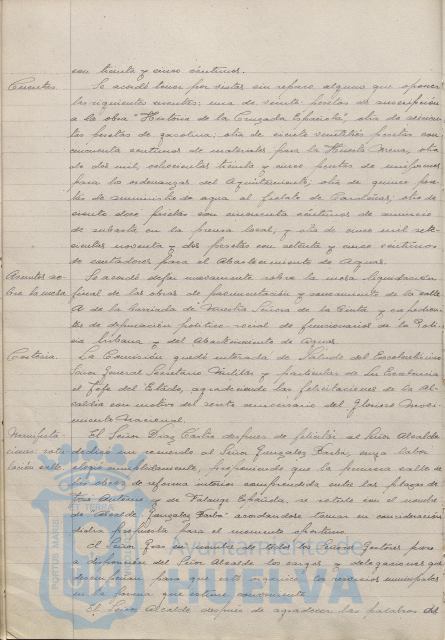 con treinta y cinco céntimos.
Cuentas. Se acordó tener por vistas sin reparo alguno que oponer
las siguientes cuentas: una de veinte pesetas de suscripción
a la obra "Historia de la Cruzada Española", otra de
pesetas de gasolina; otra de ciento veintitrés pesetas con
cincuenta céntimos de materiales para la Huerta Mena, otra
de dos mil, ochocientas treinta y cinco pesetas de uniformes
para los ordenanzas del Ayuntamiento, otra de quince pese-
tas de suministro de agua al fielato de Cardeñas, otra de
ciento doce pesetas con cincuenta céntimos de anuncio
de subasta en la prensa local, y otra de cinco mil sete-
cientas noventa y dos pesetas con setenta y cinco céntimos
de contadores para el Abastecimiento de Aguas.
Asuntos so- Se acordó dejar nuevamente sobre la mesa liquidación
bre la mesa. final de las obras de pavimentación y saneamiento de la calle
A de la barriada de Nuestra Señora de la Cinta y expedien-
tes de depuración político-social de funcionarios de la Poli-
cía Urbana y del Abastecimiento de Aguas.
Cortesía. La Comisión quedó enterada de Saluda del Excelentísimo
Señor General Secretario Militar y particular de Su Excelencia
el Jefe del Estado, agradeciendo las felicitaciones de la Al-
caldía con motivo del sexto aniversario del Glorioso Movi-
miento Nacional.
Manifesta- El Señor Díaz Castro después de felicitar al Señor Alcalde
ciones dedicó un recuerdo al Señor González Barba, cuya labor
elogió cumplidamente, proponiendo que la primera calle de
las obras de reforma interior comprendida entre las plazas de
José Antonio y de Falange Española, se rotule con el nombre
de "Alcalde González Barba" acordándose tomar en consideración
dicha propuesta para el momento oportuno.
El Señor en nombre de todos los Señores Gestores pone
a disposición del Señor Alcalde los cargos y delegaciones que
desempeñan para que este organice los servicios municipales
en la forma que estime conveniente.
El Señor Alcalde después de agradecer las palabras del
Ayuntamiento de
HUELVA
PORTUS MARIS